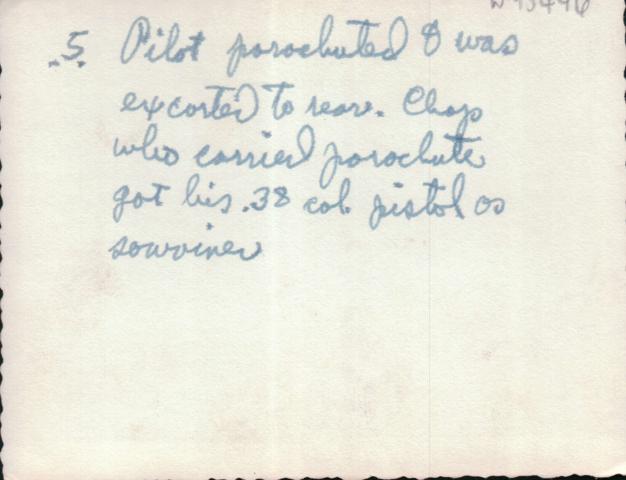 .5. Pilot parachuted & was
excorted to rear. Chap
who carried parachute
got his .38 cal. pistol as
souviner